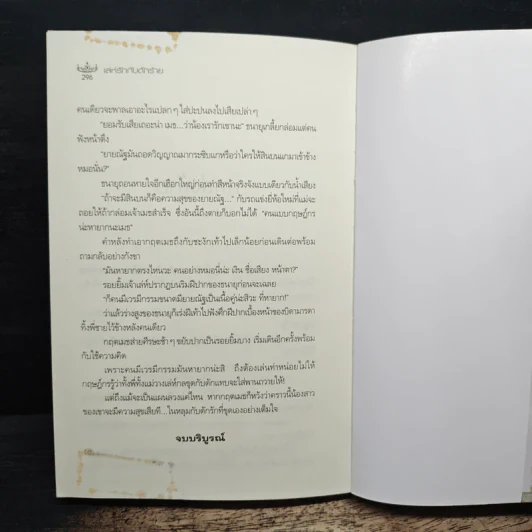 เล่ห์รักกับดักร้าย
296
คนเดียวจะพาลเอาอะไรแปลก ๆ ใส่ปะปนลงไปเสียเปล่า ๆ
"ยอมรับเสียเถอะน่า เมฆ...ว่าน้องเรารักเขานะ" ธนายุเกลี้ยกล่อมแต่คน
ฟังหน้าตึง
"ยายณัฐมันถอดวิญญาณมากระซิบแกหรือว่าใครให้สินบนแกมาเข้าข้าง
หมอนั่น?"
ธนายุถอนหายใจอีกเฮือกใหญ่ก่อนทำสีหน้าจริงจังแบบเดียวกับน้ำเสียง
"ถ้าจะมีสินบนก็คือความสุขของยายณัฐ..." กับรถแข่งยี่ห้อใหม่ที่แม่จะ
ถอยให้ถ้ากล่อมเจ้าเมฆสำเร็จ ซึ่งอันนี้ถึงตายก็บอกไม่ได้ "คนแบบกฤษฎิ์กร
น่ะหายากนะเมฆ"
คำหลังทำเอากฤตเมธถึงกับชะงักเท้าไปเล็กน้อยก่อนเดินต่อพร้อม
ถามกลับอย่างกังขา
"มันหายากตรงไหนวะ คนอย่างหมอนี่น่ะ เงิน ชื่อเสียง หน้าตา?"
รอยยิ้มเจ้าเล่ห์ปรากฏบนริมฝีปากของธนายุก่อนจะเฉลย
"ก็คนมีเวรมีกรรมขนาดมียายณัฐเป็นเนื้อคู่น่ะสิวะ ที่หายาก!"
ว่าแล้วร่างสูงของธนายุก็เร่งฝีเท้าไปฟังศึกฝีปากเบื้องหน้าของบิดามารดา
ทิ้งพี่ชายไว้ข้างหลังคนเดียว
กฤตเมธส่ายศีรษะช้า ๆ ขยับปากเป็นรอยยิ้มบาง เริ่มเดินอีกครั้งพร้อม
กับใช้ความคิด
เพราะคนมีเวรมีกรรมมันหายากน่ะสิ ถึงต้องเล่นท่าหน่อยไม่ให้
กฤษฎิ์กรรู้ว่าทั้งพี่ทั้งแม่วางเล่ห์กลขุดกับดักแทบจะใส่พานถวายให้!
แต่ถึงแม้จะเป็นแผนลวงแค่ไหน หากกฤตเมธก็หวังว่าคราวนี้น้องสาว
ของเขาจะมีความสุขเสียที...ในหลุมกับดักรักที่ขุดเองอย่างเต็มใจ
จบบริบูรณ์